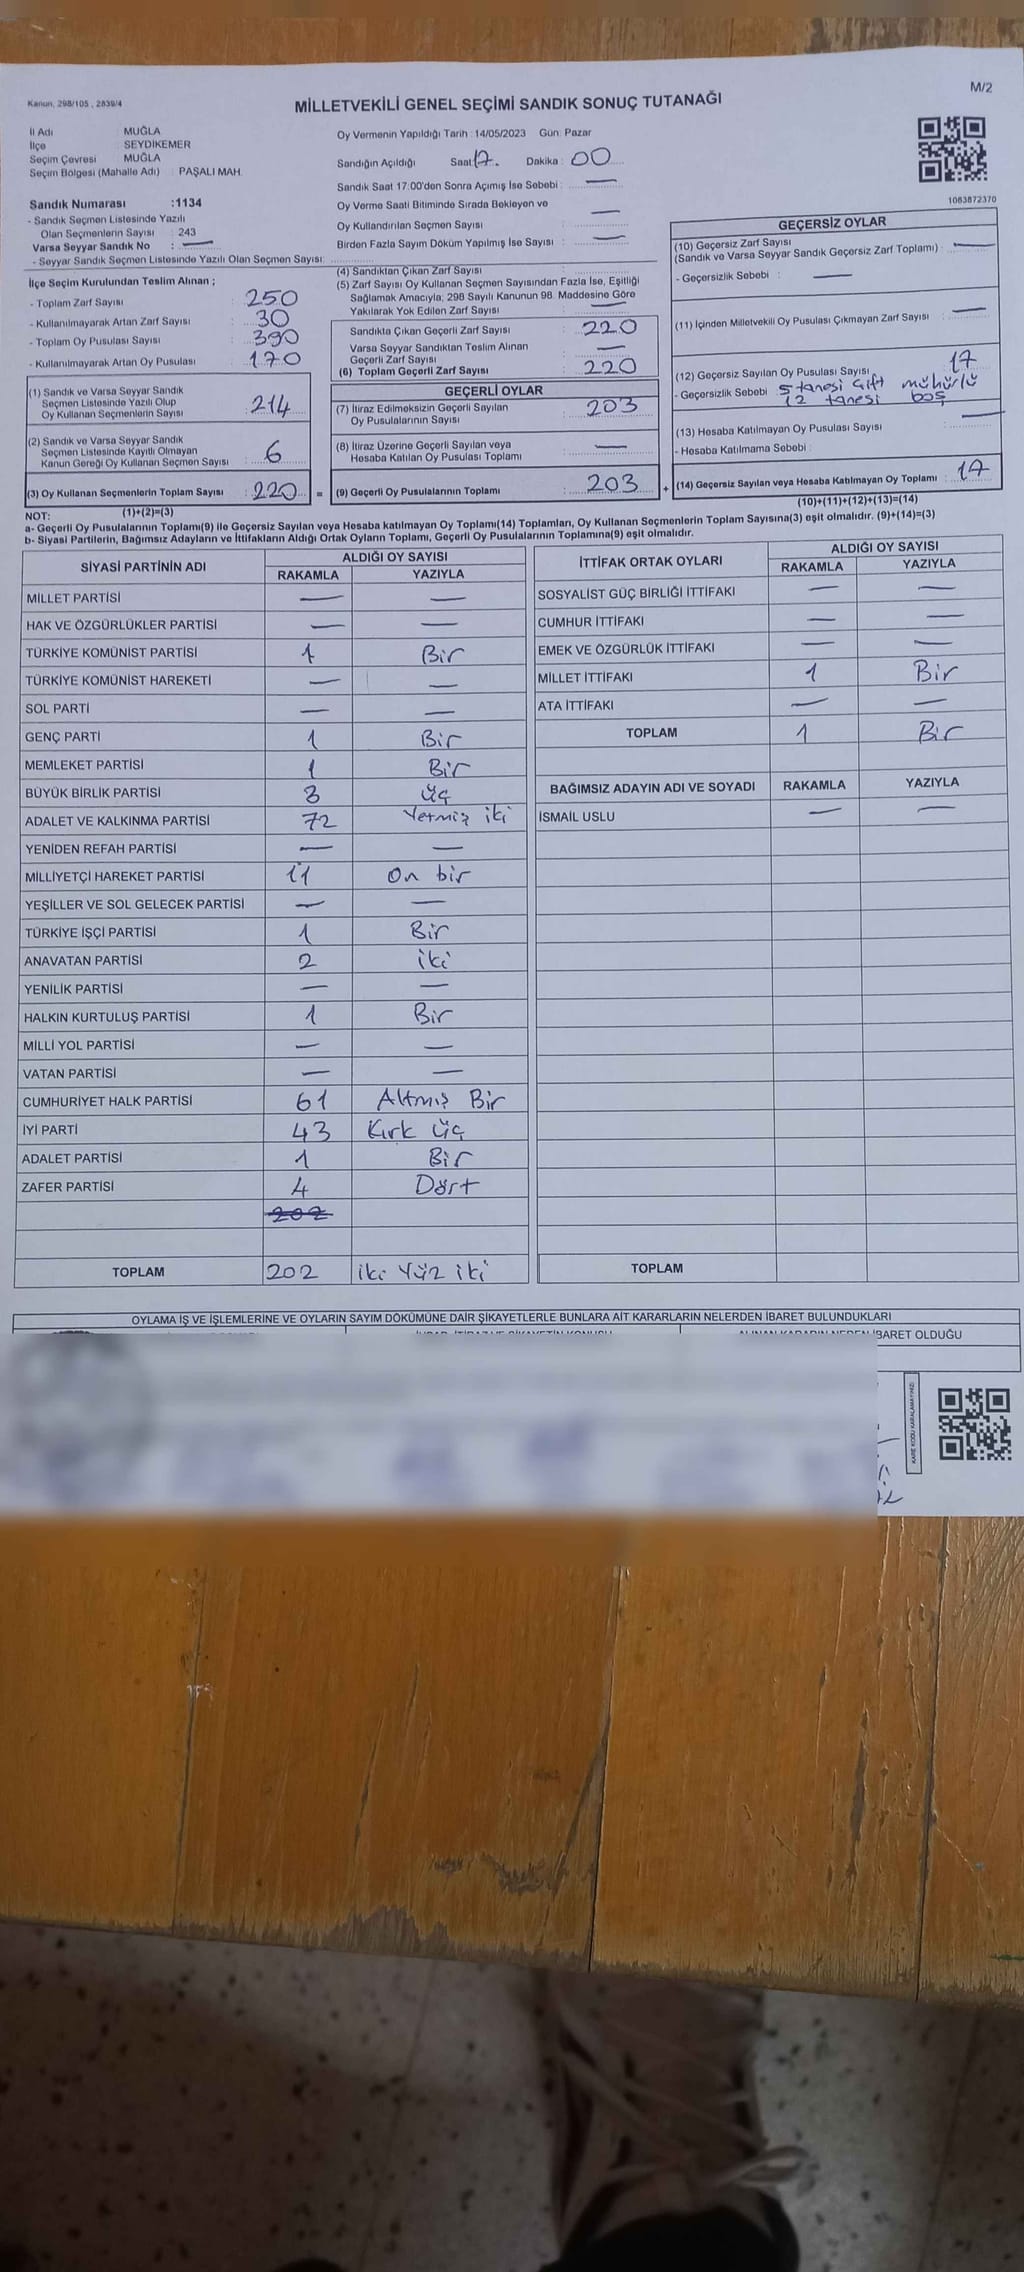 Kanun, 298/105 , 2839/4
M/2
MİLLETVEKİLİ GENEL SEÇİMİ SANDIK SONUÇ TUTANAĞI
İl Adı : MUĞLA
İlçe : SEYDİKEMER
Seçim Çevresi : MUĞLA
Seçim Bölgesi (Mahalle Adı) : PAŞALI MAH.
Sandık Numarası :1134
- Sandık Seçmen Listesinde Yazılı
Olan Seçmenlerin Sayısı : 243
Varsa Seyyar Sandık No : —
- Seyyar Sandık Seçmen Listesinde Yazılı Olan Seçmen Sayısı:
Oy Vermenin Yapıldığı Tarih :14/05/2023 Gün: Pazar
Sandığın Açıldığı Saat 17. Dakika : 00
Sandık Saat 17:00'den Sonra Açımış İse Sebebi : —
Oy Verme Saati Bitiminde Sırada Bekleyen ve
Oy Kullandırılan Seçmen Sayısı : —
Birden Fazla Sayım Döküm Yapılmış İse Sayısı : —
1063872370
İlçe Seçim Kurulundan Teslim Alınan ;
- Toplam Zarf Sayısı : 250
- Kullanılmayarak Artan Zarf Sayısı : 30
- Toplam Oy Pusulası Sayısı : 390
- Kullanılmayarak Artan Oy Pusulası : 170
(1) Sandık ve Varsa Seyyar Sandık
Seçmen Listesinde Yazılı Olup
Oy Kullanan Seçmenlerin Sayısı : 214
(2) Sandık ve Varsa Seyyar Sandık
Seçmen Listesinde Kayıtlı Olmayan
Kanun Gereği Oy Kullanan Seçmen Sayısı : 6
(3) Oy Kullanan Seçmenlerin Toplam Sayısı : 220 =
(1)+(2)=(3)
(4) Sandıktan Çıkan Zarf Sayısı :
(5) Zarf Sayısı Oy Kullanan Seçmen Sayısından Fazla İse, Eşitliği
Sağlamak Amacıyla; 298 Sayılı Kanunun 98. Maddesine Göre
Yakılarak Yok Edilen Zarf Sayısı : —
Sandıkta Çıkan Geçerli Zarf Sayısı : 220
Varsa Seyyar Sandıktan Teslim Alınan
Geçerli Zarf Sayısı : —
(6) Toplam Geçerli Zarf Sayısı : 220
GEÇERLİ OYLAR
(7) İtiraz Edilmeksizin Geçerli Sayılan
Oy Pusulalarının Sayısı : 203
(8) İtiraz Üzerine Geçerli Sayılan veya
Hesaba Katılan Oy Pusulası Toplamı : —
(9) Geçerli Oy Pusulalarının Toplamı : 203 +
GEÇERSİZ OYLAR
(10) Geçersiz Zarf Sayısı
(Sandık ve Varsa Seyyar Sandık Geçersiz Zarf Toplamı) : —
- Geçersizlik Sebebi : —
(11) İçinden Milletvekili Oy Pusulası Çıkmayan Zarf Sayısı : —
(12) Geçersiz Sayılan Oy Pusulası Sayısı : 17
- Geçersizlik Sebebi 5 tanesi çift mühürlü
12 tanesi boş
(13) Hesaba Katılmayan Oy Pusulası Sayısı : —
- Hesaba Katılmama Sebebi :
(14) Geçersiz Sayılan veya Hesaba Katılmayan Oy Toplamı : 17
(10)+(11)+(12)+(13)=(14)
NOT:
a- Geçerli Oy Pusulalarının Toplamı(9) ile Geçersiz Sayılan veya Hesaba katılmayan Oy Toplamı(14) Toplamları, Oy Kullanan Seçmenlerin Toplam Sayısına(3) eşit olmalıdır. (9)+(14)=(3)
b- Siyasi Partilerin, Bağımsız Adayların ve İttifakların Aldığı Ortak Oyların Toplamı, Geçerli Oy Pusulalarının Toplamına(9) eşit olmalıdır.
SİYASİ PARTİNİN ADI ALDIĞI OY SAYISI
RAKAMLA YAZIYLA
MİLLET PARTİSİ — —
HAK VE ÖZGÜRLÜKLER PARTİSİ — —
TÜRKİYE KOMÜNİST PARTİSİ 1 Bir
TÜRKİYE KOMÜNİST HAREKETİ — —
SOL PARTİ — —
GENÇ PARTİ 1 Bir
MEMLEKET PARTİSİ 1 Bir
BÜYÜK BİRLİK PARTİSİ 3 üç
ADALET VE KALKINMA PARTİSİ 72 Yetmiş iki
YENİDEN REFAH PARTİSİ — —
MİLLİYETÇİ HAREKET PARTİSİ 11 On bir
YEŞİLLER VE SOL GELECEK PARTİSİ — —
TÜRKİYE İŞÇİ PARTİSİ 1 Bir
ANAVATAN PARTİSİ 2 iki
YENİLİK PARTİSİ — —
HALKIN KURTULUŞ PARTİSİ 1 Bir
MİLLİ YOL PARTİSİ — —
VATAN PARTİSİ — —
CUMHURİYET HALK PARTİSİ 61 Altmış Bir
İYİ PARTİ 43 Kırk üç
ADALET PARTİSİ 1 Bir
ZAFER PARTİSİ 4 Dört
202
TOPLAM 202 iki Yüz iki
İTTİFAK ORTAK OYLARI ALDIĞI OY SAYISI
RAKAMLA YAZIYLA
SOSYALİST GÜÇ BİRLİĞİ İTTİFAKI — —
CUMHUR İTTİFAKI — —
EMEK VE ÖZGÜRLÜK İTTİFAKI — —
MİLLET İTTİFAKI 1 Bir
ATA İTTİFAKI — —
TOPLAM 1 Bir
BAĞIMSIZ ADAYIN ADI VE SOYADI RAKAMLA YAZIYLA
İSMAİL USLU — —
TOPLAM
OYLAMA İŞ VE İŞLEMLERİNE VE OYLARIN SAYIM DÖKÜMÜNE DAİR ŞİKAYETLERLE BUNLARA AİT KARARLARIN NELERDEN İBARET BULUNDUKLARI
İBARET OLDUĞU
KARE KODU KARALAMAYINIZ!